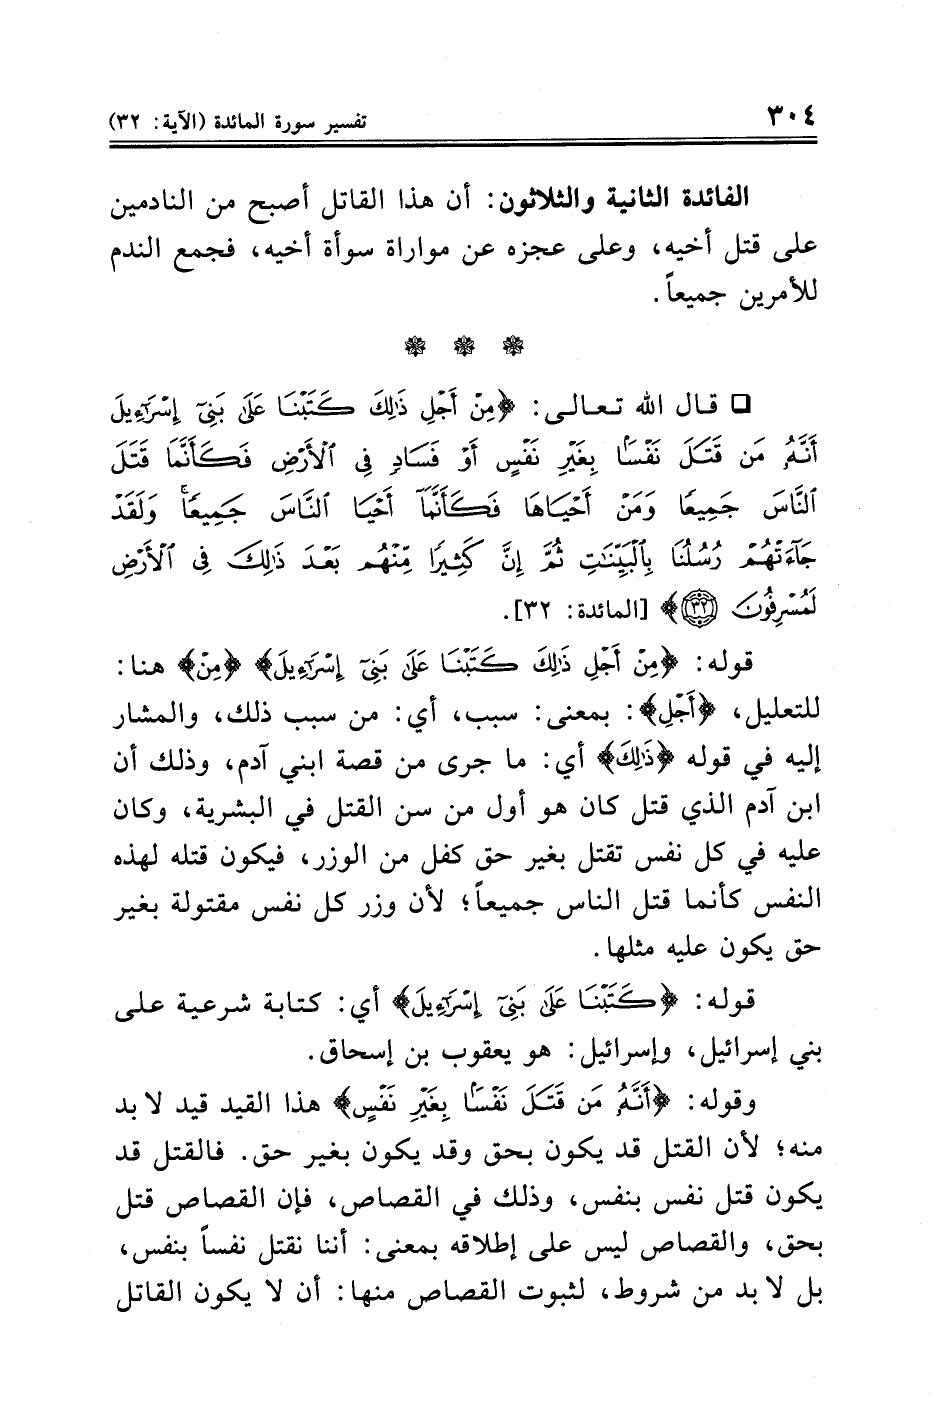 ٣٠٤ تفسير سورة المائدة (الآية: ٣٢)
الفائدة الثانية والثلاثون: أن هذا القاتل أصبح من النادمين
على قتل أخيه، وعلى عجزه عن مواراة سوأة أخيه، فجمع الندم
للأمرين جميعاً.
❁ ❁ ❁
❑ قال الله تعالى: ﴿مِنْ أَجْلِ ذَٰلِكَ كَتَبْنَا عَلَىٰ بَنِىٓ إِسْرَٰٓءِيلَ
أَنَّهُۥ مَن قَتَلَ نَفْسًۢا بِغَيْرِ نَفْسٍ أَوْ فَسَادٍ فِى ٱلْأَرْضِ فَكَأَنَّمَا قَتَلَ
ٱلنَّاسَ جَمِيعًا وَمَنْ أَحْيَاهَا فَكَأَنَّمَآ أَحْيَا ٱلنَّاسَ جَمِيعًا ۚ وَلَقَدْ
جَآءَتْهُمْ رُسُلُنَا بِٱلْبَيِّنَٰتِ ثُمَّ إِنَّ كَثِيرًا مِّنْهُم بَعْدَ ذَٰلِكَ فِى ٱلْأَرْضِ
لَمُسْرِفُونَ ٣٢﴾ [المائدة: ٣٢].
قوله: ﴿مِنْ أَجْلِ ذَٰلِكَ كَتَبْنَا عَلَىٰ بَنِىٓ إِسْرَٰٓءِيلَ﴾ ﴿مِنْ﴾ هنا:
للتعليل، ﴿أَجْلِ﴾: بمعنى: سبب، أي: من سبب ذلك، والمشار
إليه في قوله ﴿ذَٰلِكَ﴾ أي: ما جرى من قصة ابني آدم، وذلك أن
ابن آدم الذي قتل كان هو أول من سن القتل في البشرية، وكان
عليه في كل نفس تقتل بغير حق كفل من الوزر، فيكون قتله لهذه
النفس كأنما قتل الناس جميعاً؛ لأن وزر كل نفس مقتولة بغير
حق يكون عليه مثلها.
قوله: ﴿كَتَبْنَا عَلَىٰ بَنِىٓ إِسْرَٰٓءِيلَ﴾ أي: كتابة شرعية على
بني إسرائيل، وإسرائيل: هو يعقوب بن إسحاق.
وقوله: ﴿أَنَّهُۥ مَن قَتَلَ نَفْسًۢا بِغَيْرِ نَفْسٍ﴾ هذا القيد قيد لا بد
منه؛ لأن القتل قد يكون بحق وقد يكون بغير حق. فالقتل قد
يكون قتل نفس بنفس، وذلك في القصاص، فإن القصاص قتل
بحق، والقصاص ليس على إطلاقه بمعنى: أننا نقتل نفساً بنفس،
بل لا بد من شروط، لثبوت القصاص منها: أن لا يكون القاتل